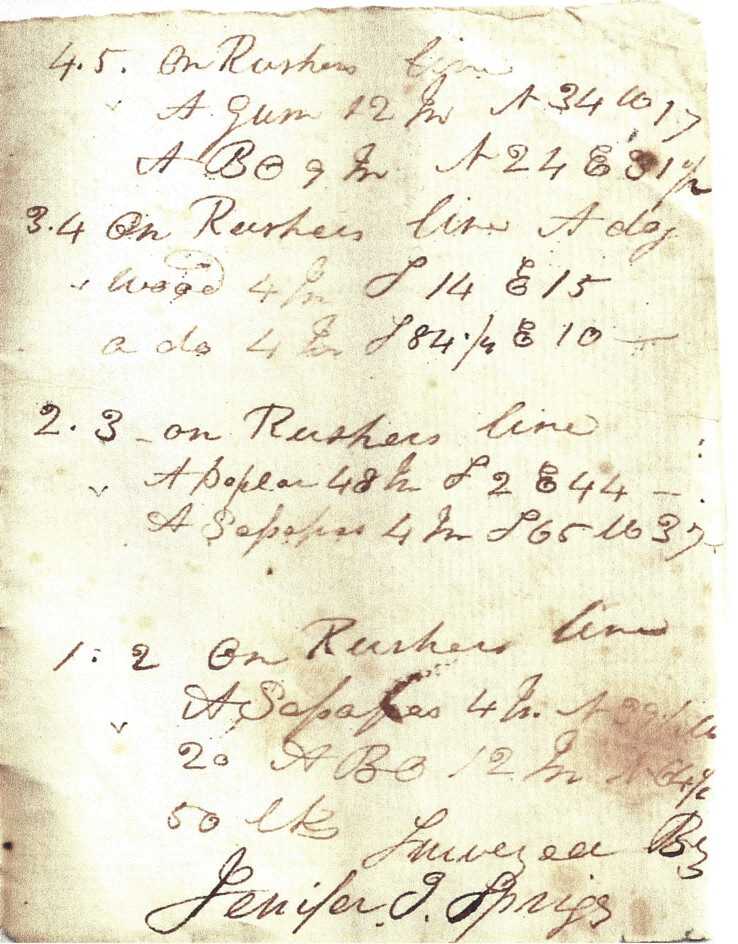 4.5. On Rushers line
A Gum 12 In N 34 W 17
A BO 9 In N 24 E 31 1/2
3.4 On Rushers line A dog
wood 4 In S 14 E 15
a do 4 In S 84 1/4 E 10 —
2.3 - on Rushers line
A poplar 48 In S 2 E 44 —
A Sasafras 4 In S 65 W 37
1.2 On Rushers line
A Sasafras 4 In. N
20 A BO 12 In N 64 1/2
50 lks Surveyed By
Jenifer. J. Sprigs